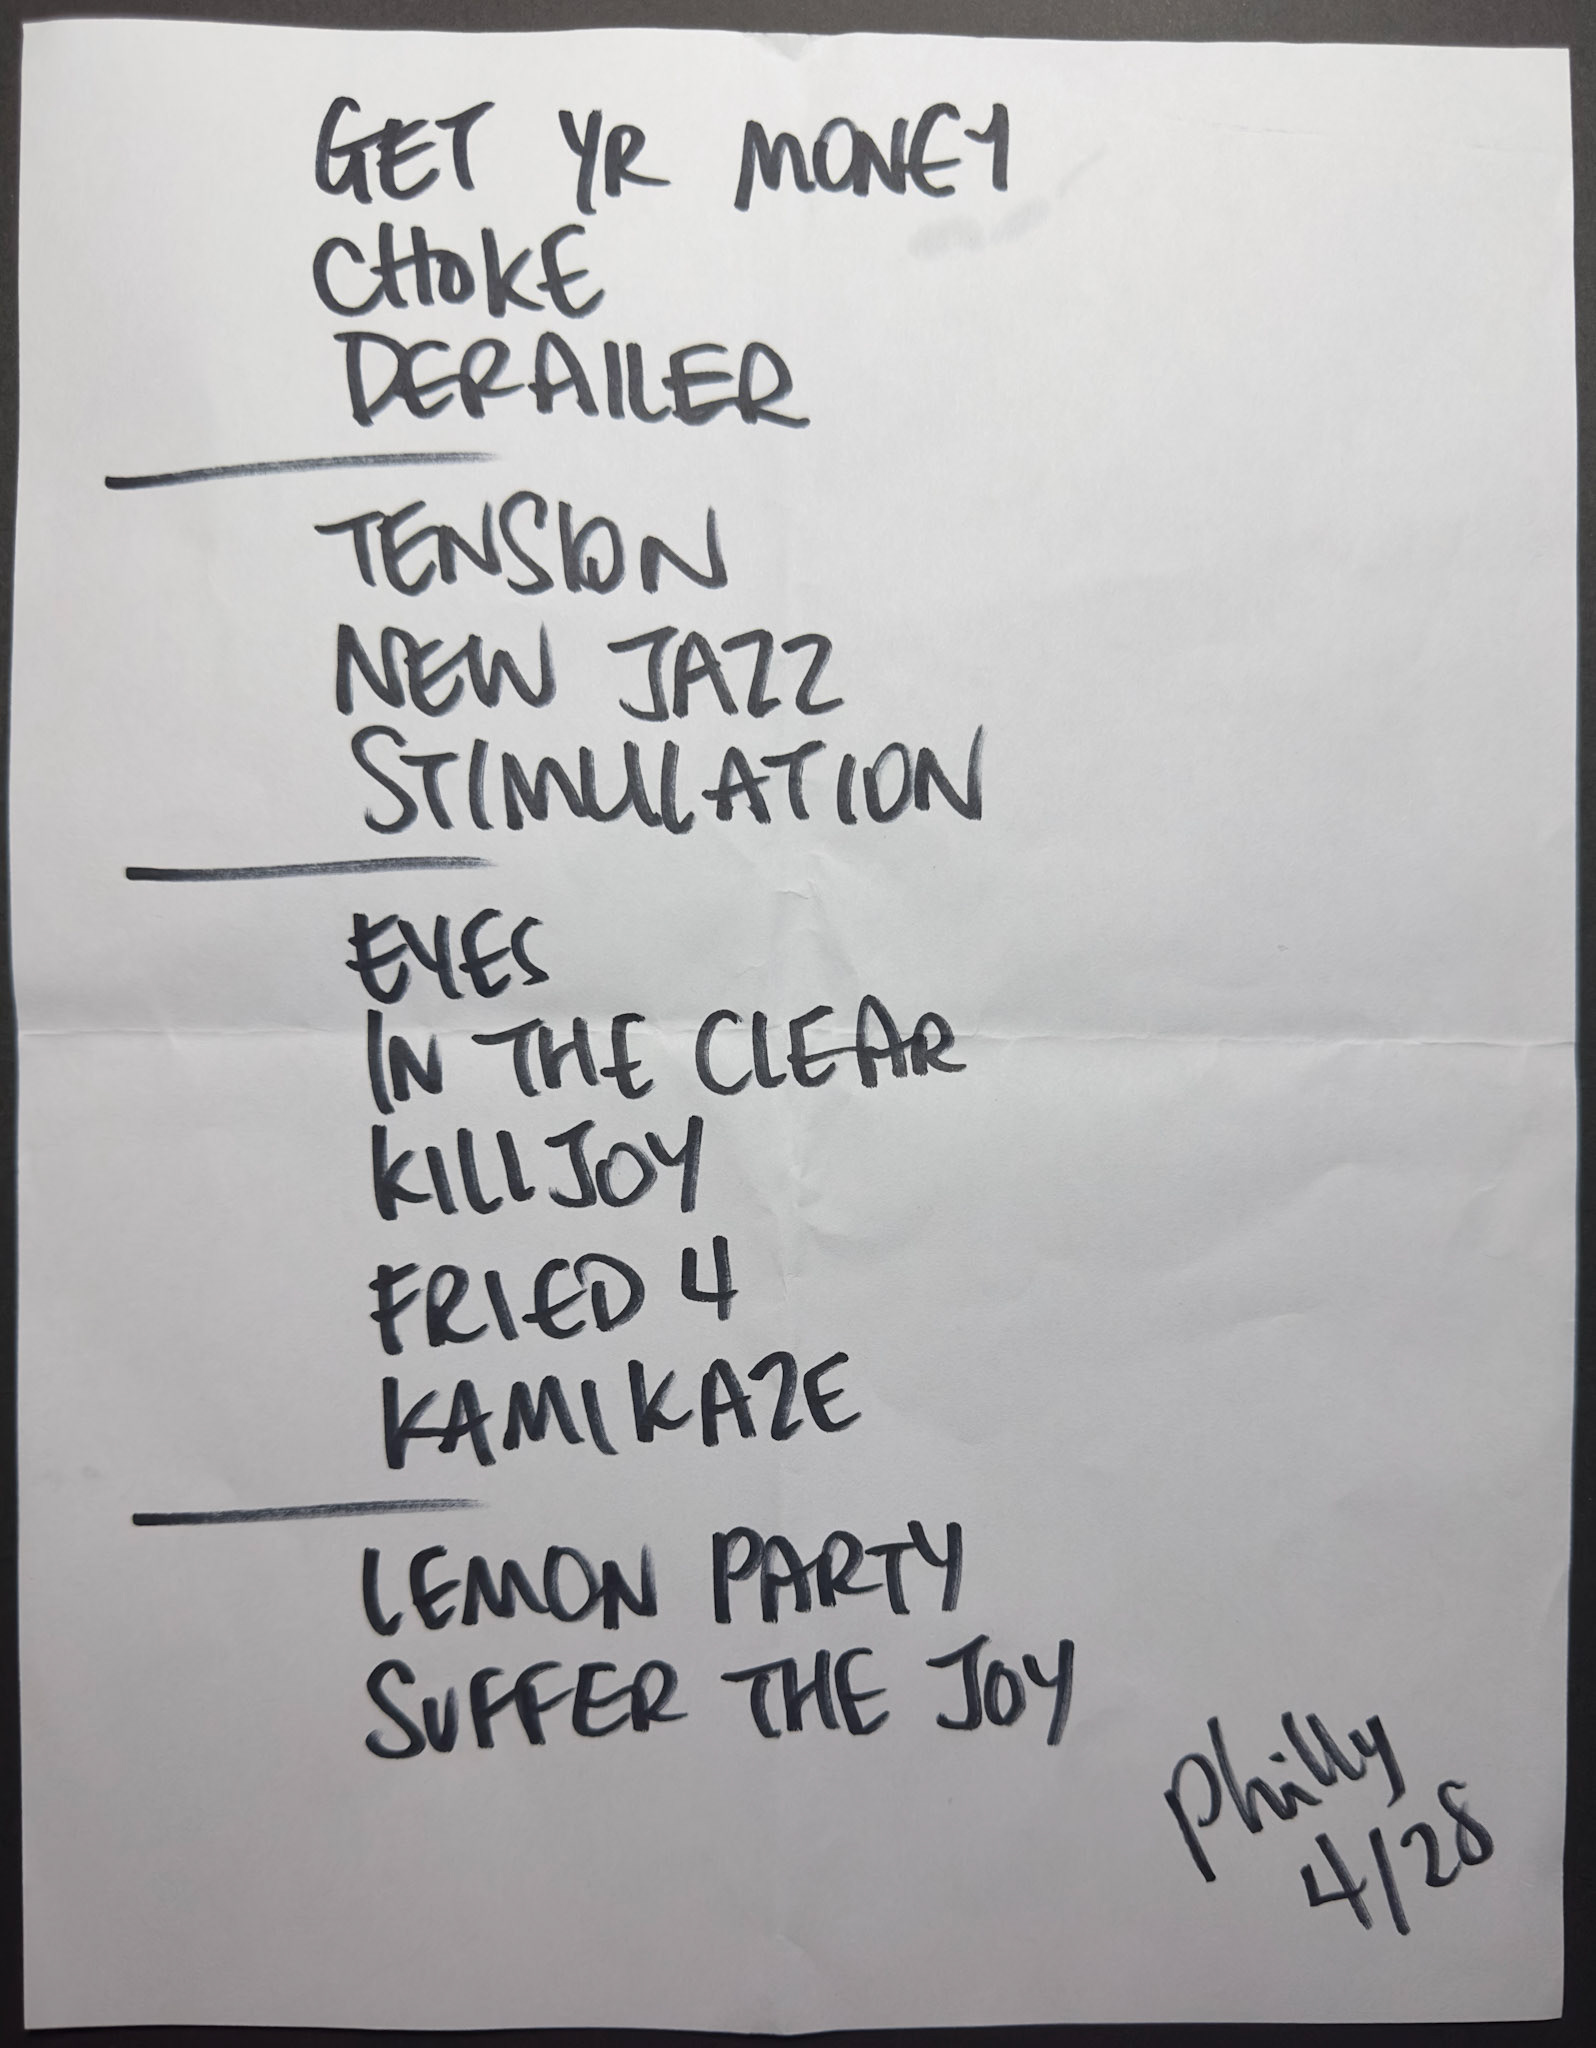 GET YR MONEY
CHOKE
DERAILER
TENSION
NEW JAZZ
STIMULATION
EYES
IN THE CLEAR
KILLJOY
FRIED 4
KAMIKAZE
LEMON PARTY
SUFFER THE JOY
Philly
4/28